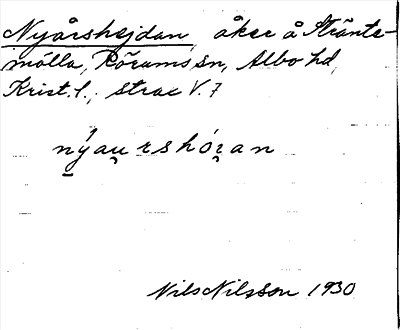 Nyårshejdan, åker å Stänte-
mölla, Rörums sn, Albo hd,
Krist. l., strax V. 7
nýau̯rshór̯an
Nils Nilsson 1930